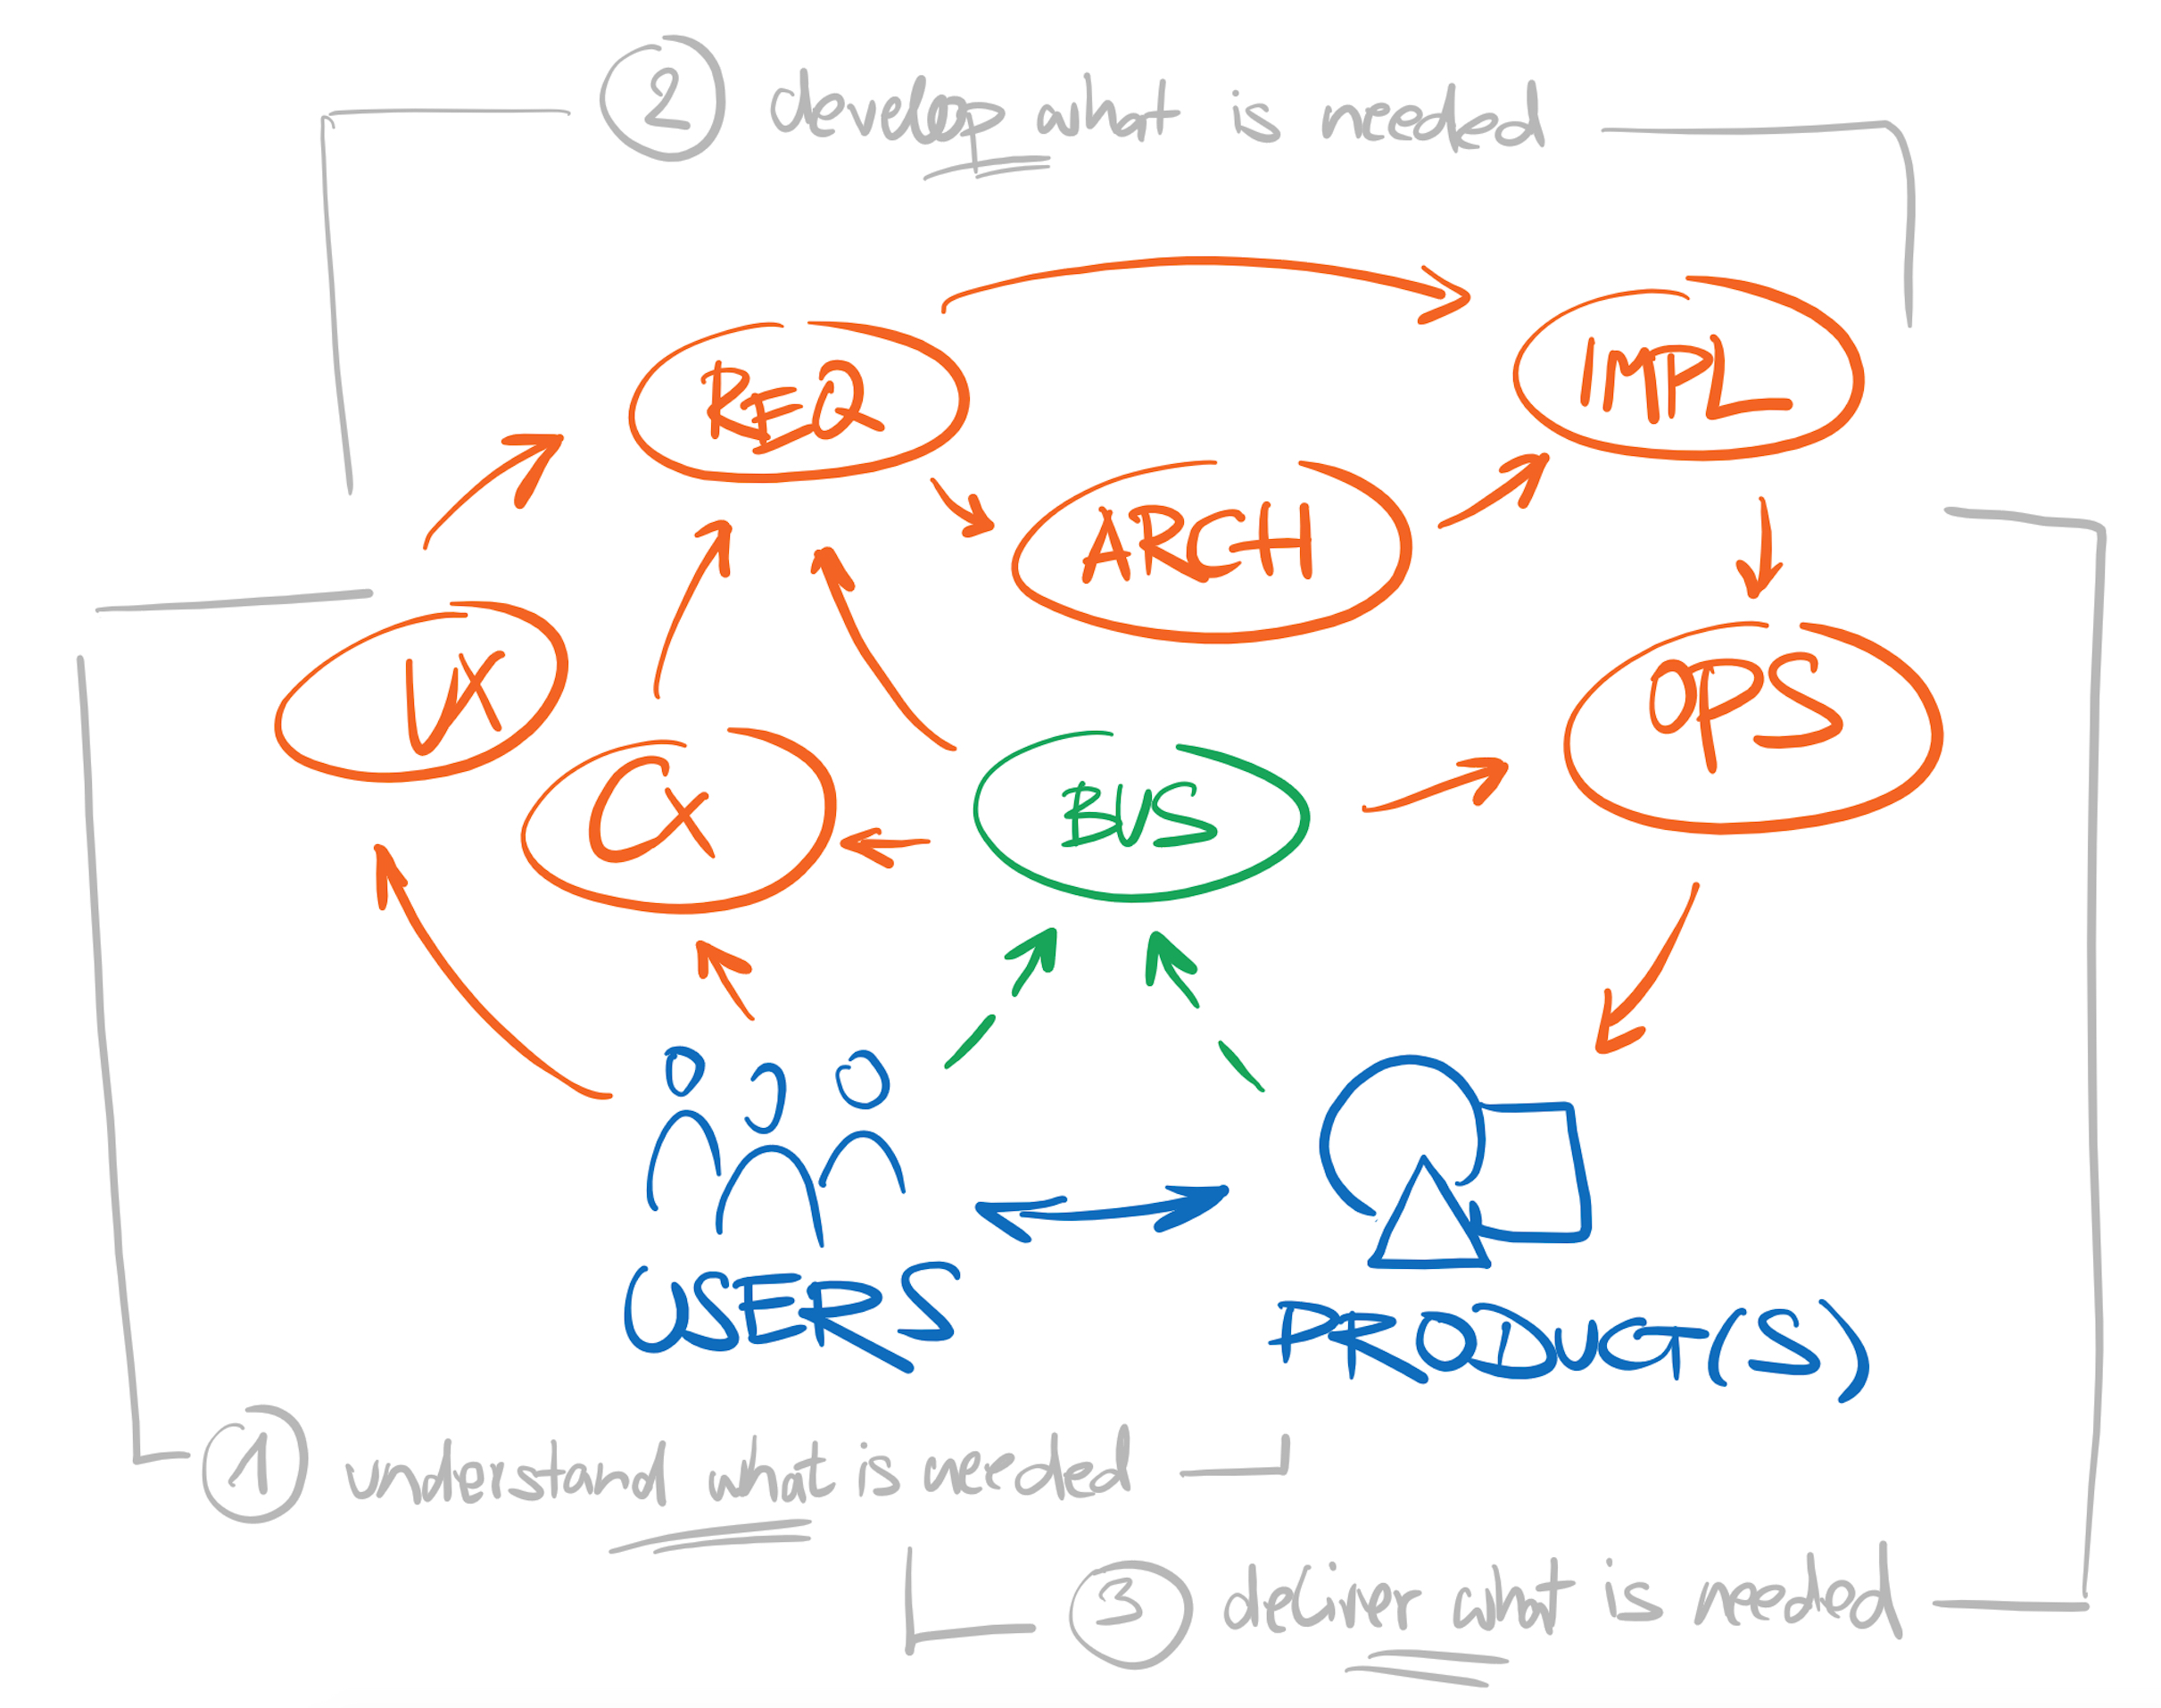 2 develop what is needed
REQ
IMPL
ARCH
UX
OPS
CX
BUS
USERS
PRODUCT(S)
1 understand what is needed
3 deliver what is needed